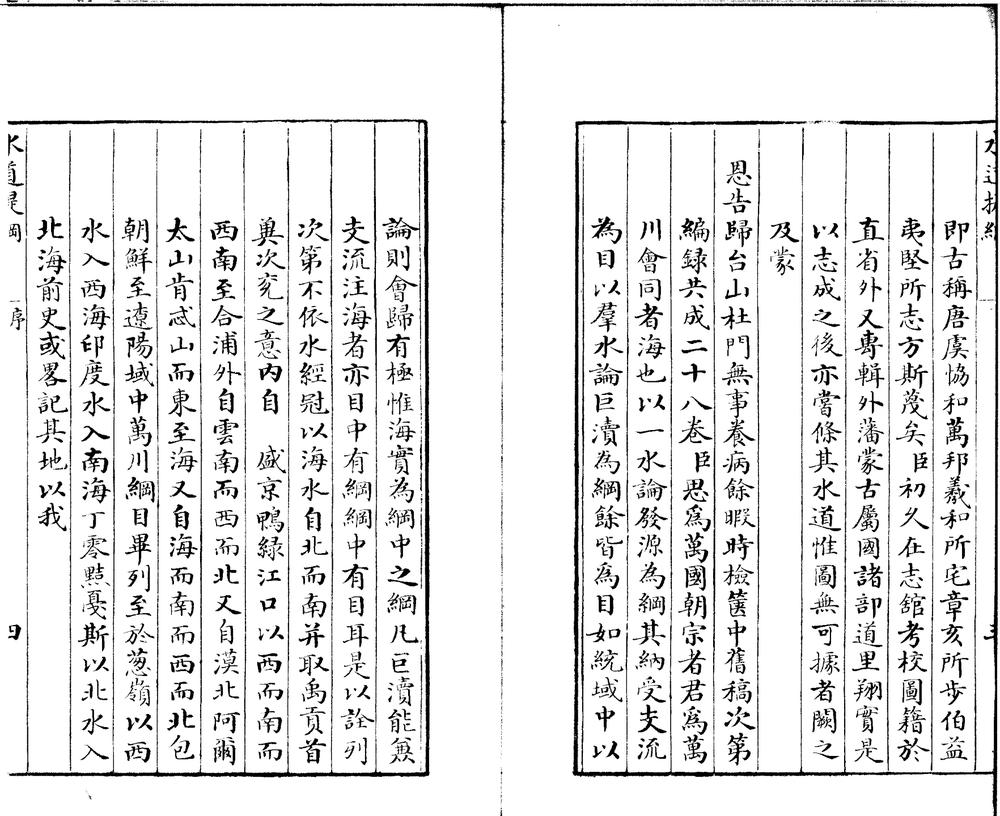 即古稱唐虞協和萬邦羲和所宅章亥所步伯益
夷堅所志方斯蔑矣臣初久在志館考校圖籍於
直省外又專輯外藩蒙古屬國諸部道里翔實是
以志成之後亦嘗條其水道惟圖無可據者闕之
及蒙
恩告歸台山杜門無事養病餘暇時檢篋中舊稿次第
編録共成二十八卷臣思爲萬國朝宗者君爲萬
川會同者海也以一水論發源為綱其納受支流
為目以羣水論巨瀆為綱餘皆爲目如統域中以
論則會歸有極惟海實為綱中之綱凡巨瀆能兼
支流注海者亦目中有綱綱中有目耳是以詮列
次第不依水經冠以海水自北而南并取禹貢首
兾次兖之意內自 盛京鴨緑江口以西而南而
西南至合浦外自雲南而西而北又自漠北阿爾
太山肯忒山而東至海又自海而南而西而北包
朝鮮至遼陽域中萬川綱目畢列至於葱嶺以西
水入西海印度水入南海丁零黠戞斯以北水入
北海前史或畧記其地以我
水道提綱
序
四